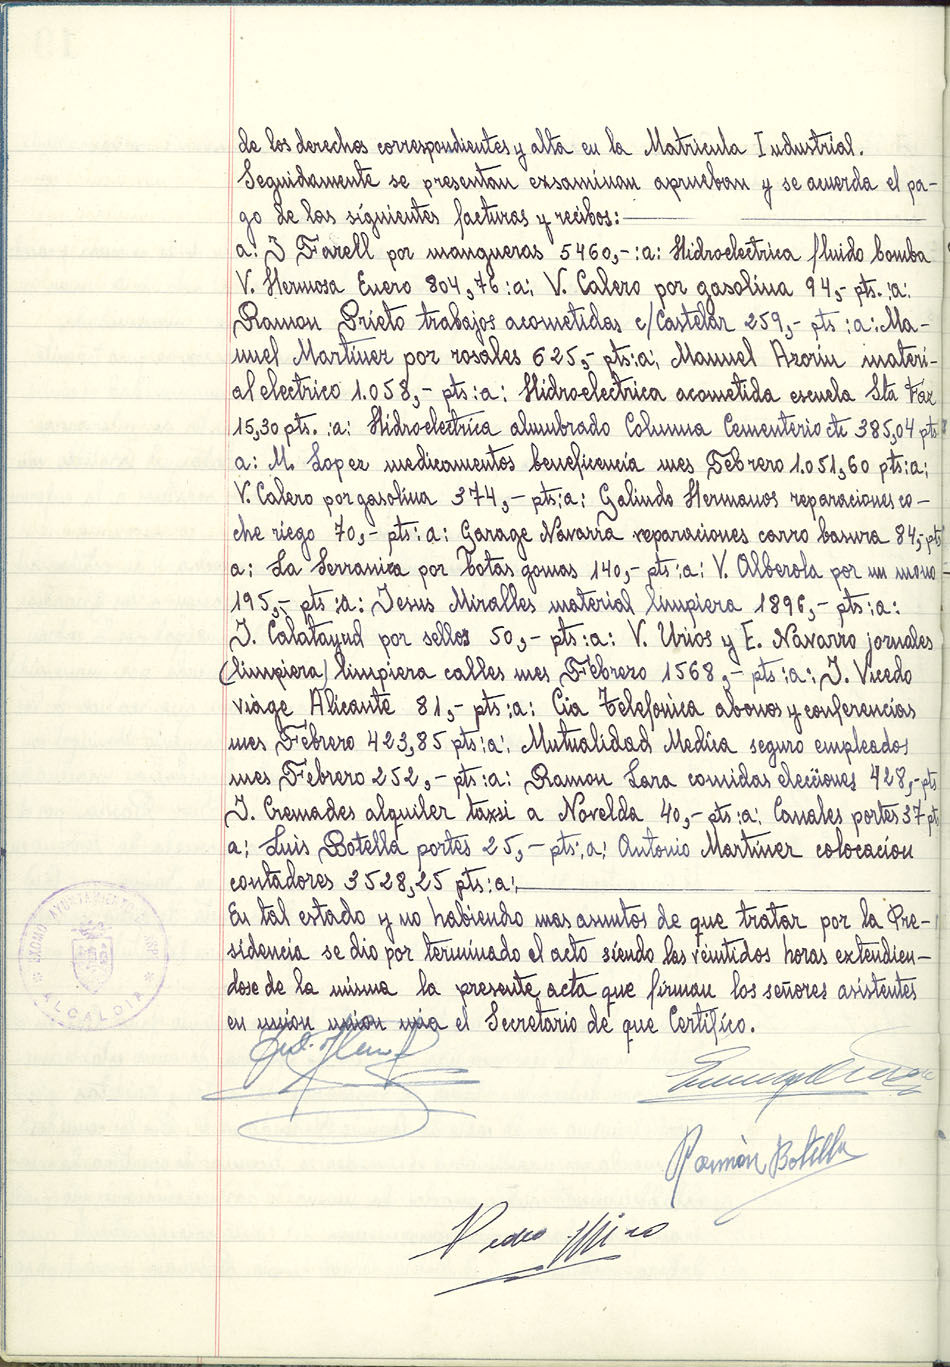 de los derechos correspondientes y alta en la Matricula Industrial.
Seguidamente se presentan exsaminan aprueban y se acuerda el pa-
go de las siguientes facturas y recibos:
a: J Farell por mangueras 5460,- :a: Hidroelectrica fluido bomba
V. Hermosa Enero 804,76 :a: V. Calero por gasolina 94,- pts. :a:
Ramon Prieto trabajos acometidas c/Castelar 259,- pts :a: Ma-
nuel Martinez por rosales 625,- pts :a: Manuel Azorin materi-
al electrico 1.058,- pts :a: Hidroelectrica acometida escuela Sta Faz
15,30 pts. :a: Hidroelectrica alumbrado Columna Cementerio etc 385,04 pts
a: M. Lopez medicamentos beneficencia mes Febrero 1.051,60 pts :a:
V. Calero por gasolina 374,- pts :a: Galindo Hermanos reparaciones co-
che riego 70,- pts :a: Garage Navarra reparaciones carro basura 84,- pts
a: La Serranica por botas gomas 140,- pts :a: V. Alberola por un mono
195,- pts :a: Jesus Miralles material limpiera 1896,- pts :a:
J. Calatayud por sellos 50,- pts :a: V. Urios y E. Navarro jornales
(limpiera) limpiera calles mes Febrero 1568,- pts :a: J. Vicedo
viage Alicante 81,- pts :a: Cia Telefonica abonos y conferencias
mes Febrero 423,85 pts :a: Mutualidad Medica seguro empleados
mes Febrero 252,- pts :a: Ramon Lara comidas elecciones 428,- pts
J. Cremades alquiler taxsi a Novelda 40,- pts :a: Canales portes 37 pts
a: Luis Botella portes 25,- pts :a: Antonio Martinez colocacion
contadores 3528,25 pts :a:
En tal estado y no habiendo mas asuntos de que tratar por la Pre-
sidencia se dio por terminado el acto siendo las veintidos horas extendien-
dose de la misma la presente acta que firman los señores asistentes
en union union mia el Secretario de que Certifico.
EXCMO AYUNTAMIENTO
ALCALDIA
Ramón Botella
Pedro Miro